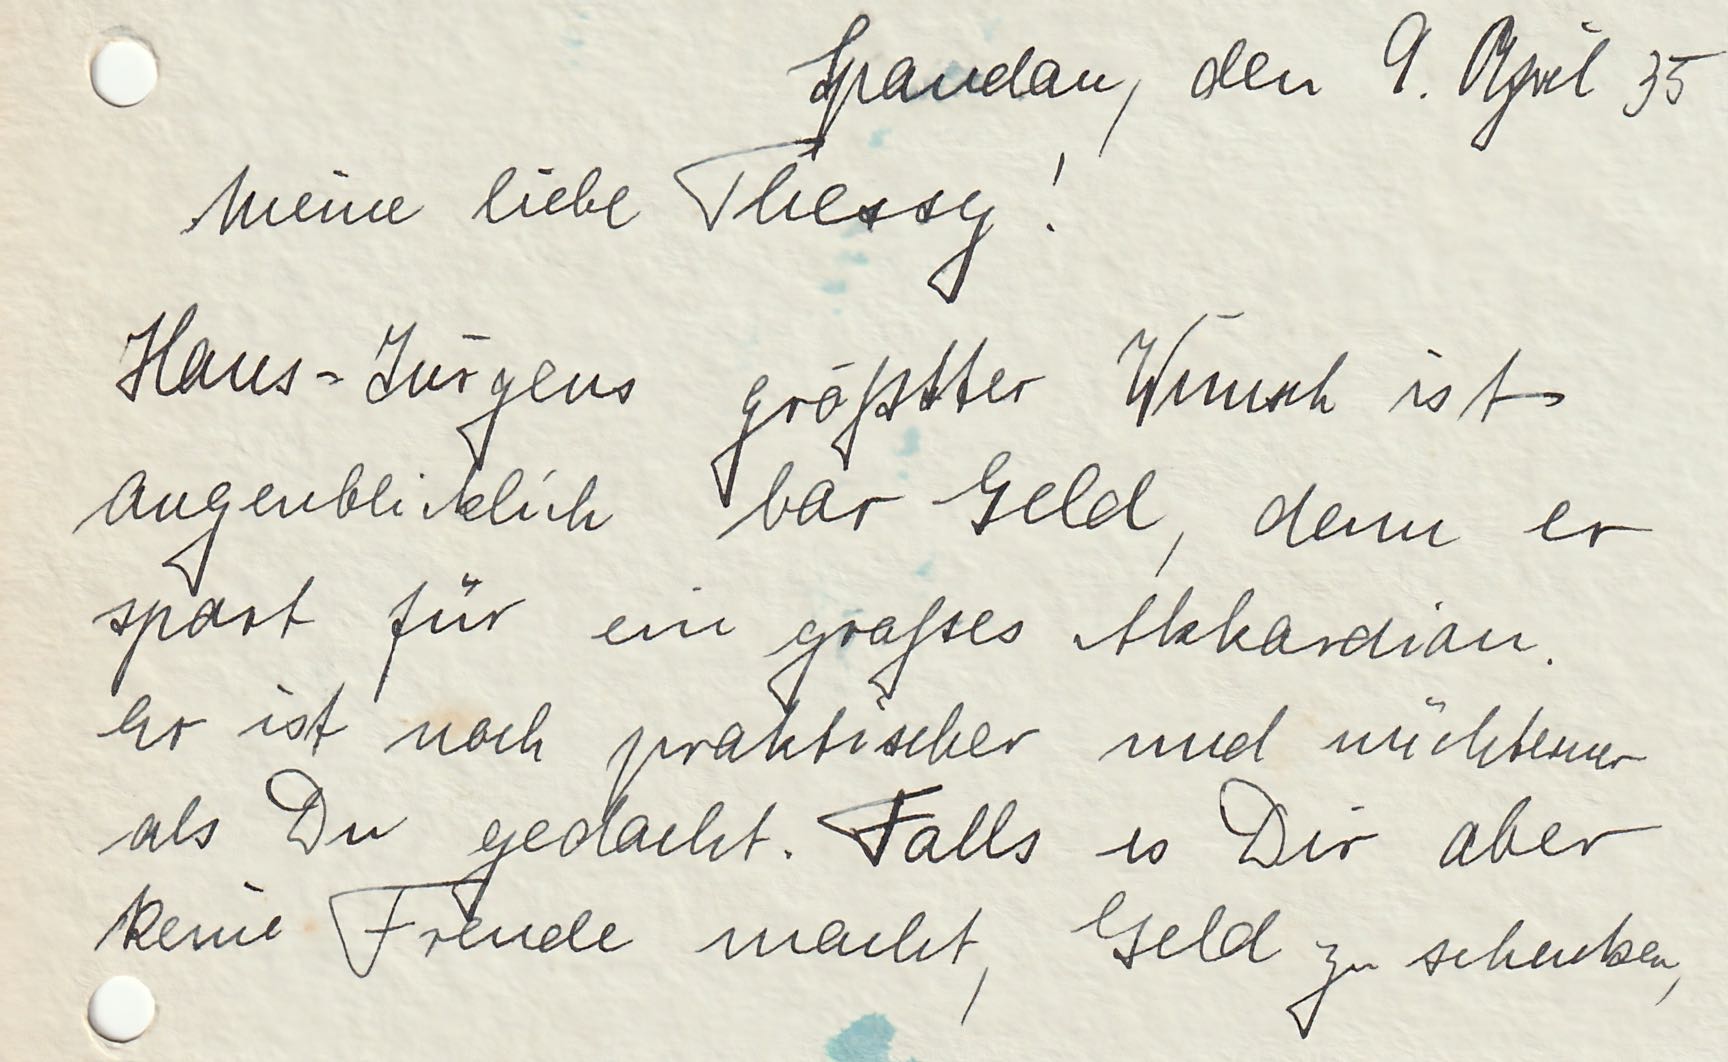 Spandau, den 9. April 35
Meine liebe Thessy!
Hans-Jürgens größter Wunsch ist
augenblicklich bar Geld, denn er
spart für ein großes Akkordion.
Er ist noch praktischer und nüchterner
als Du gedacht. Falls es Dir aber
keine Freude macht, Geld zu schenken,